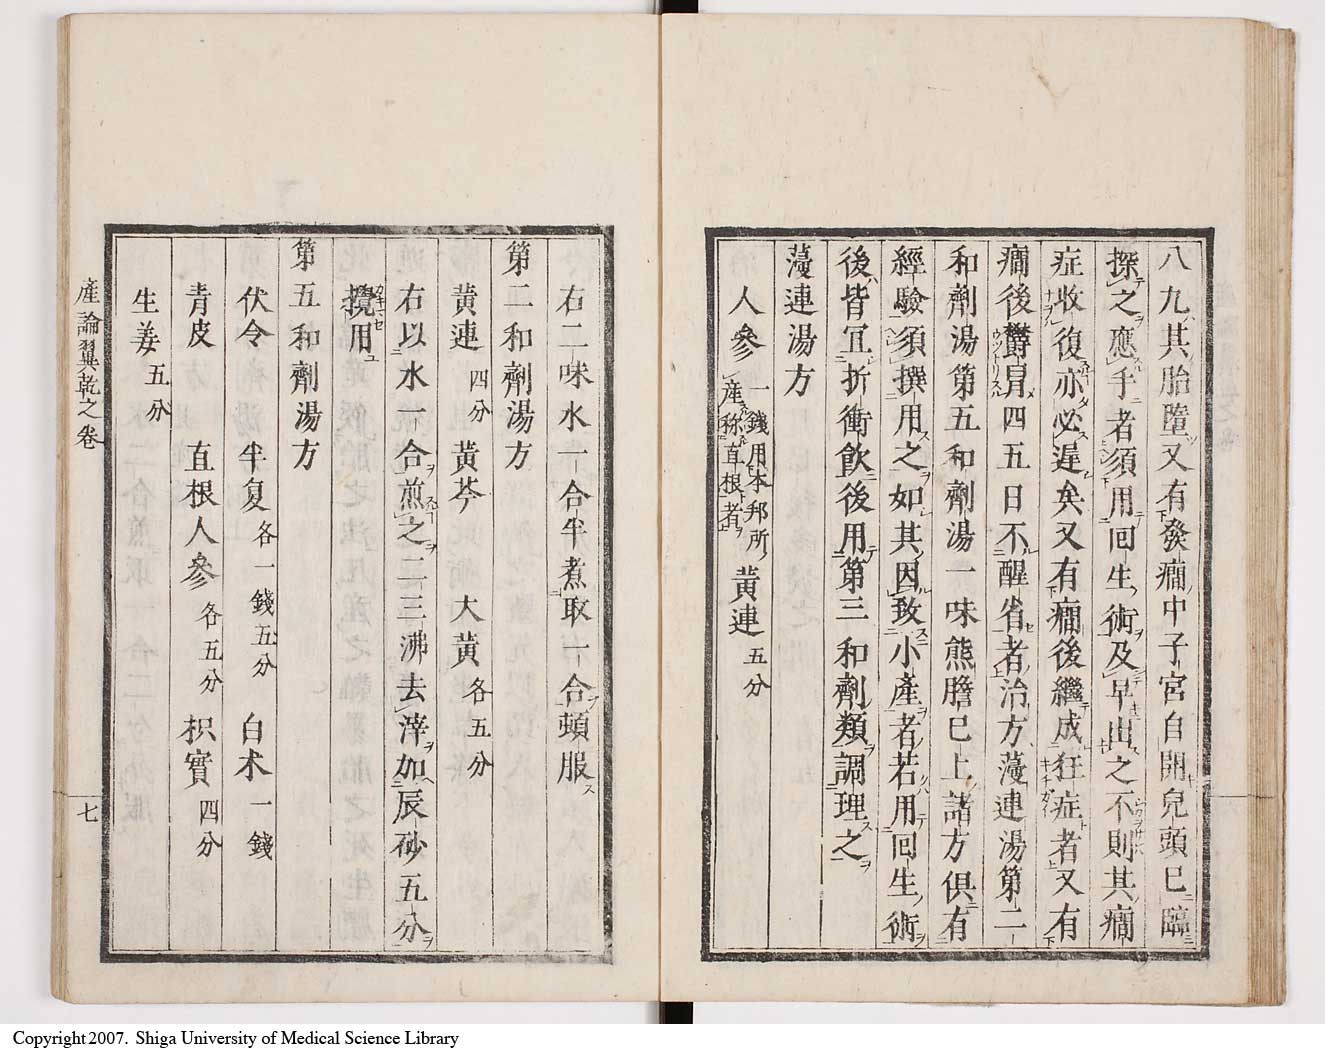 八九其胎墮又有發癇中子宮自開兒頭已臨
探之應手者須用回生術及早出之不則其癇
症收復亦必遲矣又有癇後繼成狂症者又有
癇後欝冒四五日不醒省者治方蕩連湯第二
和劑湯第五和劑湯一味熊膽已上諸方俱有
經驗須撰用之如其因致小產者若用回生術
後皆冝折衝飲後用第三和劑類調理之
蕩連湯方
人參 一錢用本邦所產称直根者 黃連 五分
右二味水一合半煮取一合頓服
第二和劑湯方
黃連 四分 黃芩 大黃 各五分
右以水一合煎之二三沸去滓加辰砂五分
攪用
第五和劑湯方
伏令 半夏 各一錢五分 白朮 一錢
青皮 直根人參 各五分 枳實 四分
生姜 五分
產論翼乾之卷 七
Copyright 2007. Shiga University of Medical Science Library